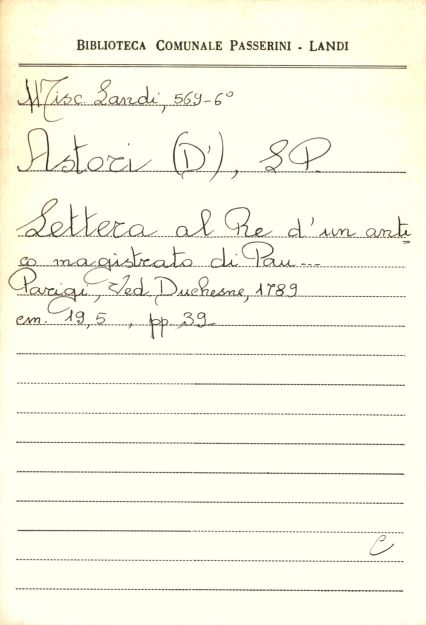 BIBLIOTECA COMUNALE PASSERINI - LANDI
Misc. Landi, 569-6°
Astori (D'), L P.
Lettera al Re d'un anti=
co magistrato di Pau...
Parigi, Ved. Duchesne, 1789
cm. 19,5 , pp. 39.
C